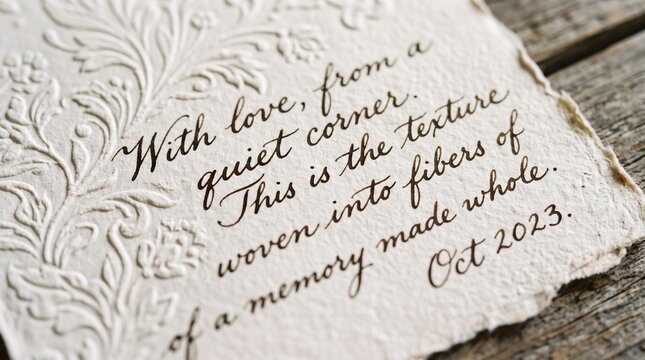 With love, from a
quiet corner.
This is the texture
woven into fibers of
of a memory made whole.
Oct 2023.